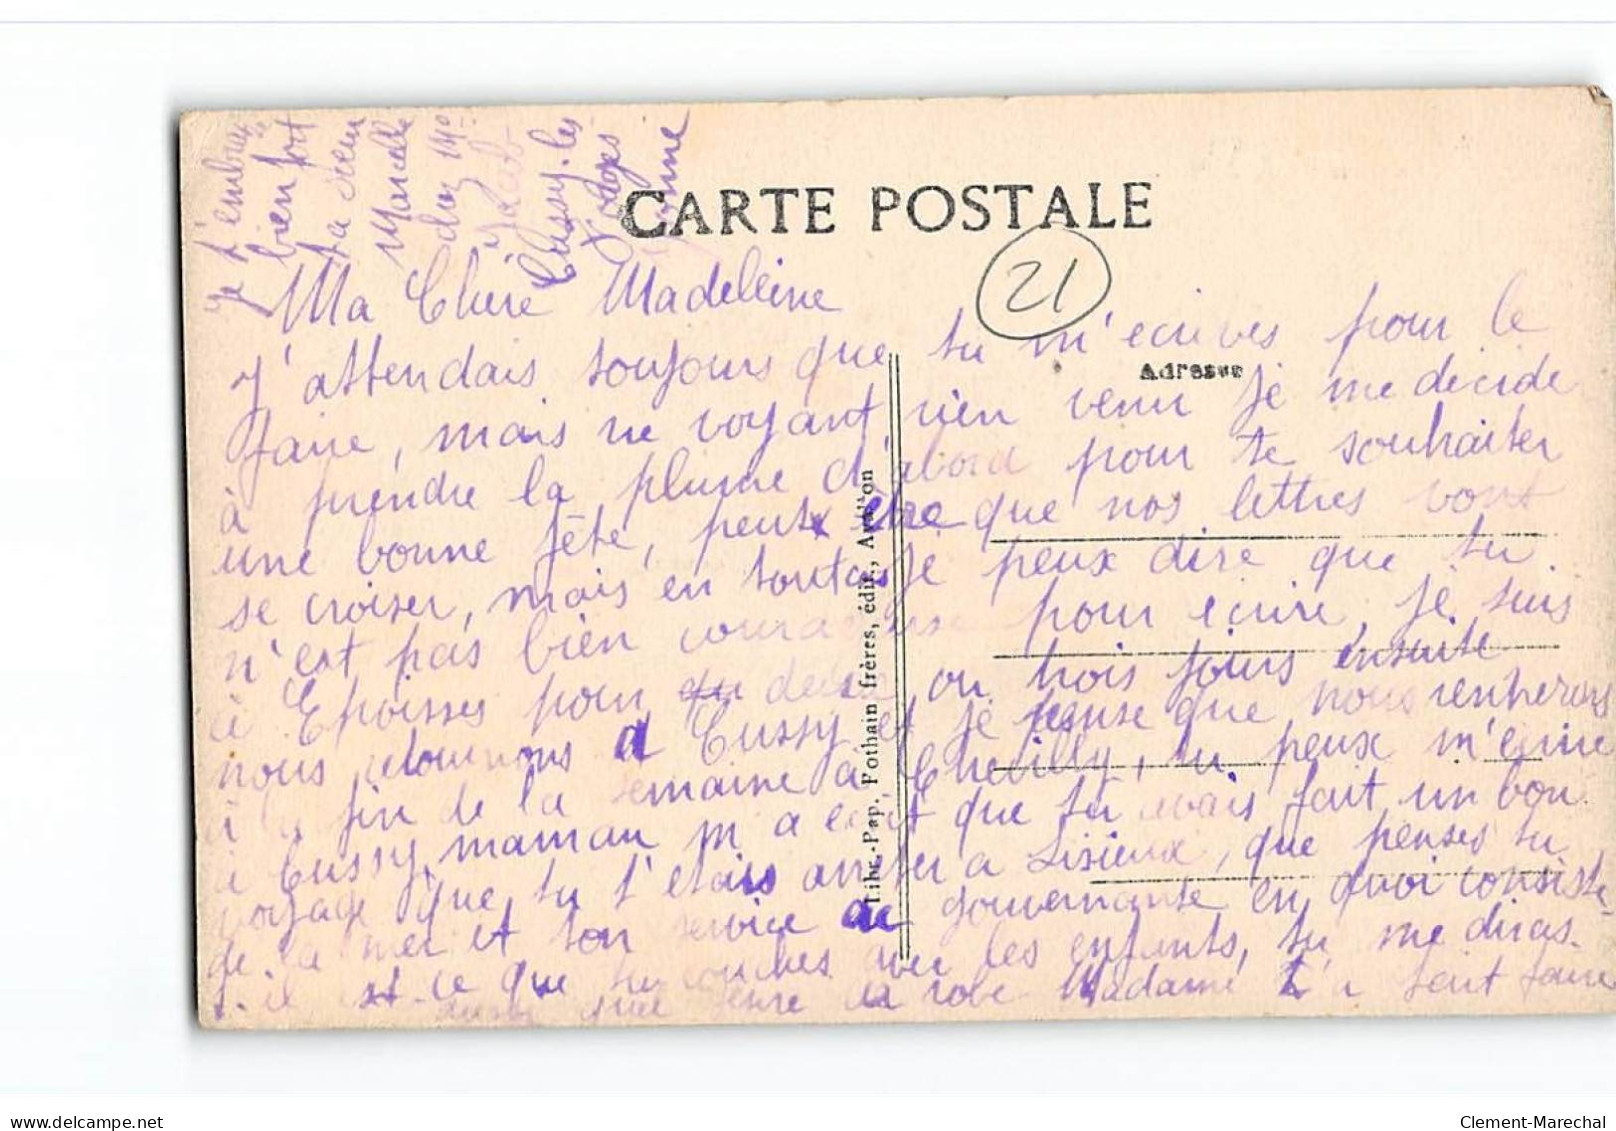 CARTE POSTALE
21
Adresse
Ma Chère Madeleine
J'attendais toujours que tu m'ecrives pour le
faire, mais ne voyant rien venu je me decide
à prendre la plume d'abord pour te souhaiter
une bonne fête, peux etre que nos lettres vont
se croiser, mais en toutcas je peux dire que tu
n'est pas bien courageuse pour ecrire, je suis
à Epoisses pour deux ou trois jours ensuite
nous retournons a Cussy et je pense que nous rentrerons
à la fin de la semaine à Chevilly, tu peux m'ecrire
a Cussy, maman m'a ecrit que tu avais fait un bon
voyage que tu t'etais arrêter a Lisieux, que penses tu
de la mer et ton service de gouvernante en quoi consiste-
t-il est ce que tu couches avec les enfants, tu me diras
aussi quel genre de robe Madame t'a fait faire
je t'embrasse
bien fort
ta sœur
Marcelle
chez Mr
Jacob
Cussy-les-
Forges
Yonne
Libr.-Pap. Pothain frères, édit., Avallon
delcampe.net
Clement-Marechal